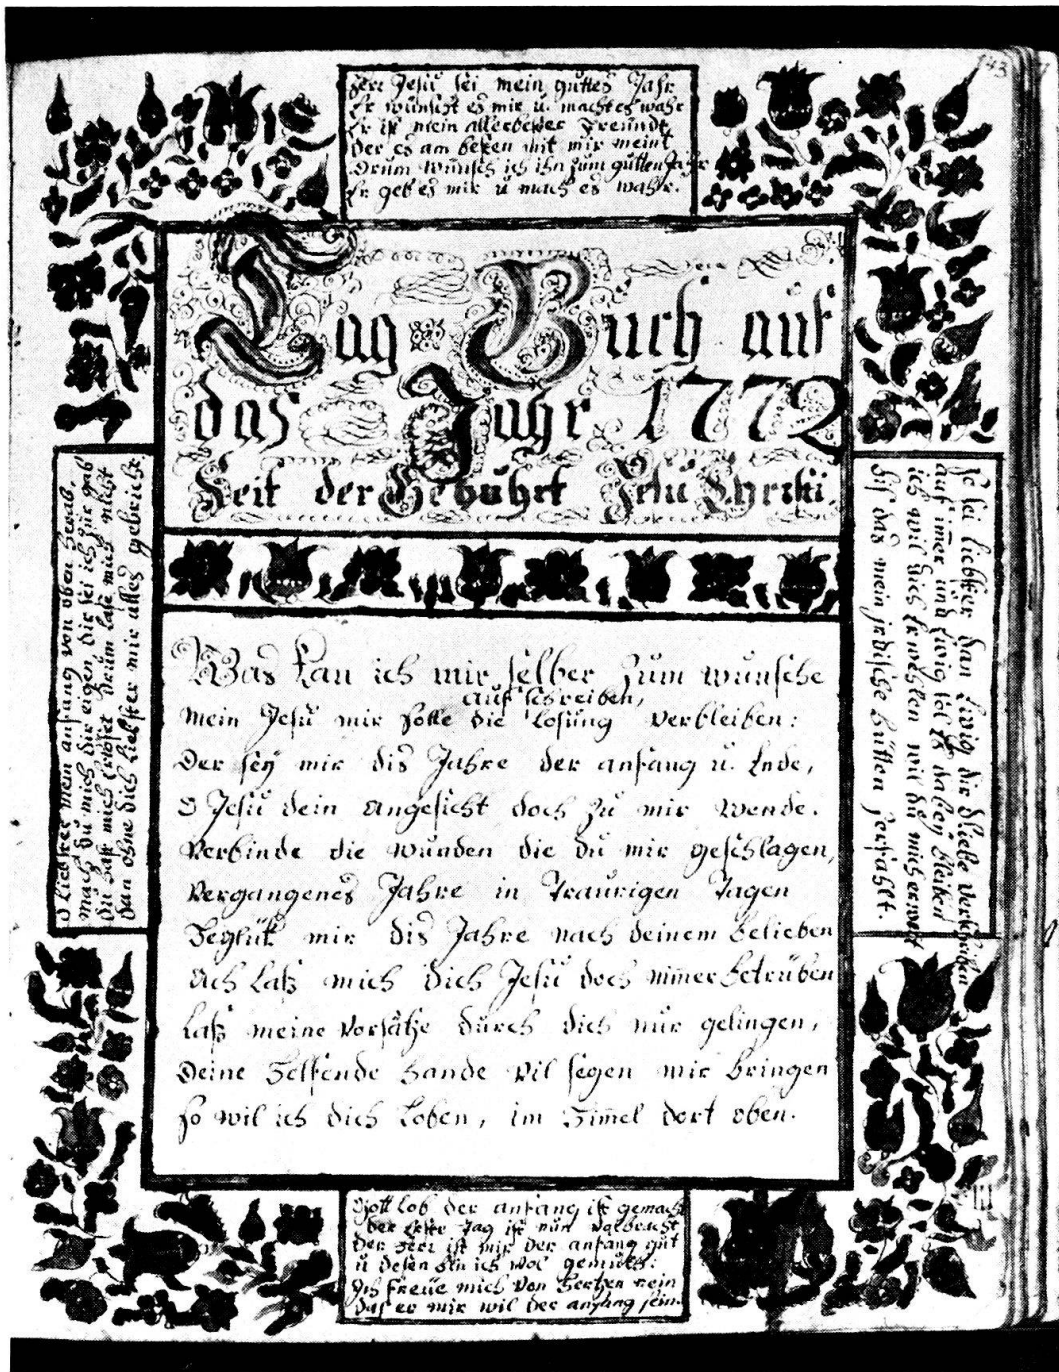 143
Herr Jesu sei mein guttes Jahr
Er wünscht es mir u. macht es wahr
Er ist mein allerbester Freundt
Der es am besten mit mir meint
Drum wünsch ich ihn zum gutten Jahr
Er geb es mir u mach es wahr.
Tag Buch auf
das Jahr 1772
Seit der Gebuhrt Jesu Christi.
O Liebster mein anfang von oben herab,
mach du mich dir eigen, dir sei ich zur gab
du hast mich Erlöset drum lase mich nicht
dan ohne dich Liebster mir alles gebricht
So sei liebster dan Ewig dir Sliebe verschriben
auf imer und Ewig sol es dabey bleiben
ich wil dich Erwehlen wil du mich erwelt
bis das mein jrdische hütten zerfahlt.
Was kan ich mir selber zum wunsche
auf schreiben,
mein Jesu mir solle die Losung verbleiben:
Der sey mir dis Jahre der anfang u. Ende,
O Jesu dein angesicht doch zu mir wende.
Verbinde die wunden die du mir geschlagen,
Vergangenes Jahre in Traurigen Tagen
Beglük mir dis Jahre nach deinem Belieben
Ach Laß mich dich Jesu doch nimer betrüben
Laß meine Vorsätze durch dich nur gelingen,
Deine Helfende Hande vil segen mir bringen
so wil ich dich Loben, im Himel dort oben.
Gott lob der anfang ist gemacht
der erste Tag ist nun volbracht
Der Herr ist mir der anfang gut
u desen bin ich wol gemuth:
Ich Freue mich von Hertzen rein
Das er mir wil der anfang sein.